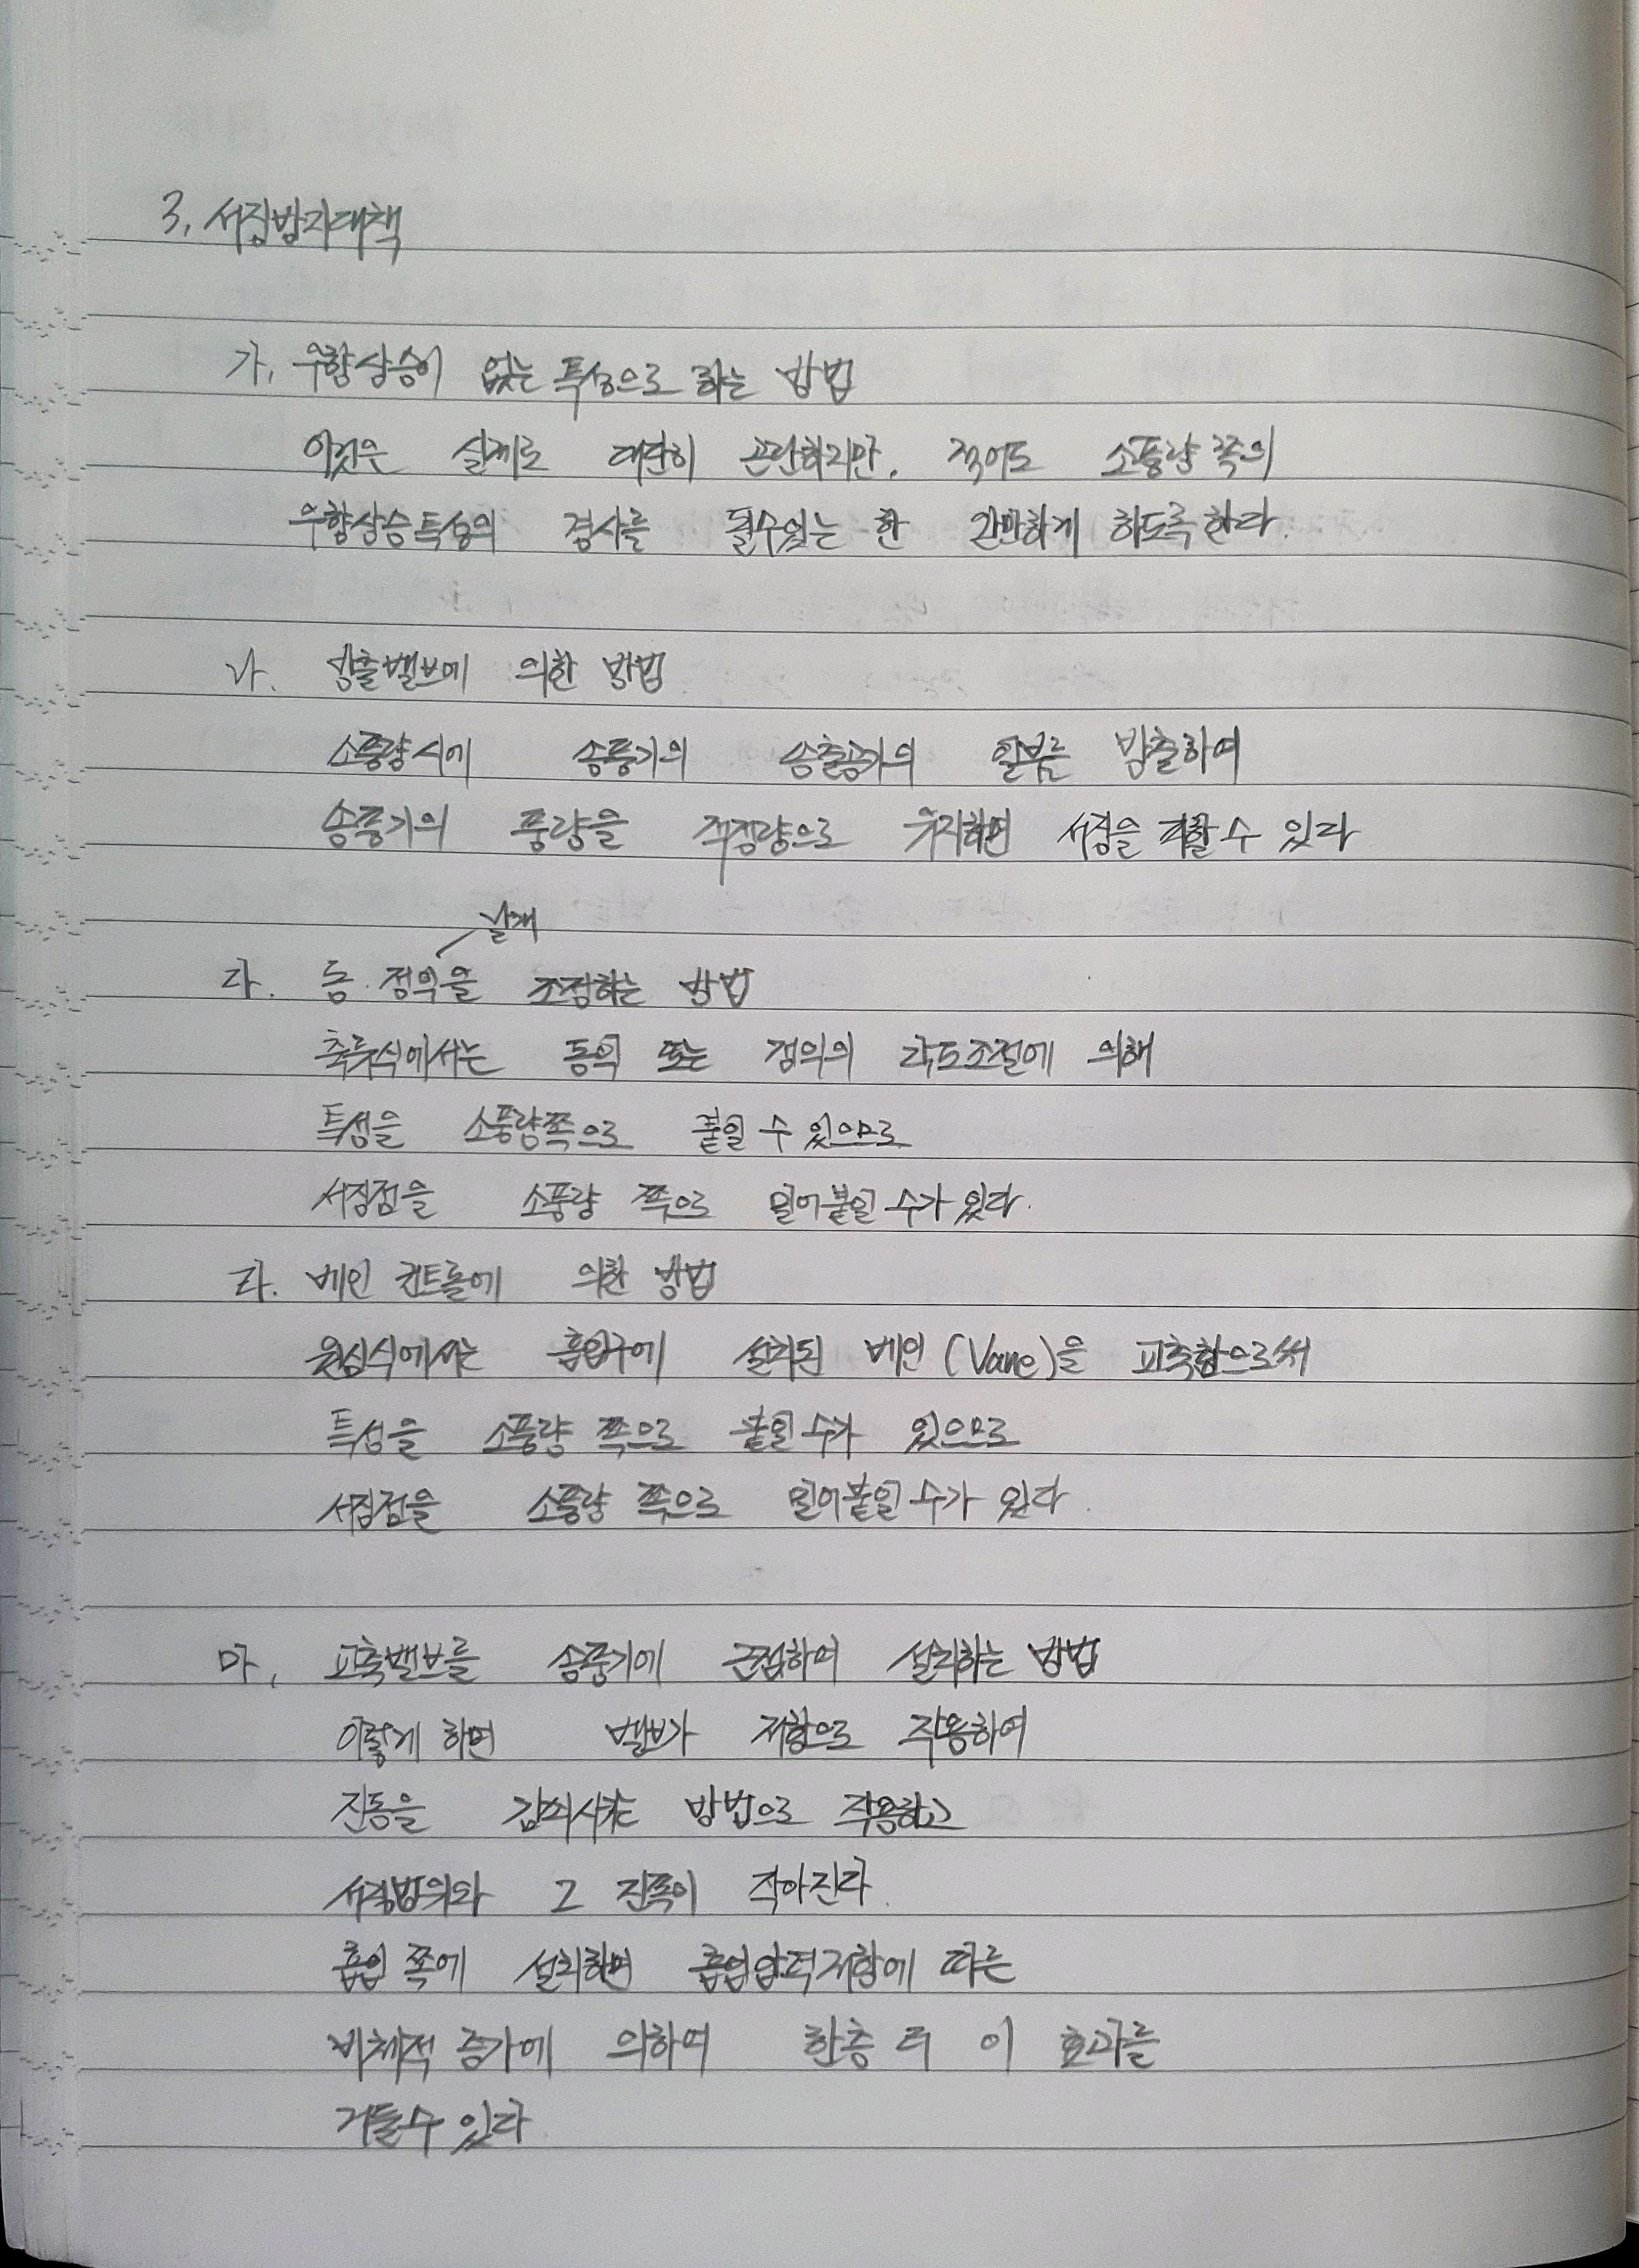 3. 서징방지대책
가. 우향상승이 없는 특성으로 하는 방법
이것은 실제로 대단히 곤란하지만, 적어도 소풍량 쪽의
우향상승특성의 경사를 될수있는 한 완만하게 하도록한다.
나. 방출밸브에 의한 방법
소풍량시에 송풍기의 송출공기의 일부를 방출하여
송풍기의 풍량을 적정량으로 유지하면 서징을 피할 수 있다
날개
다. 동·정익을 조정하는 방법
축류식에서는 동익 또는 정익의 각도조절에 의해
특성을 소풍량쪽으로 붙일 수 있으므로
서징점을 소풍량 쪽으로 밀어붙일 수가 있다.
라. 베인 컨트롤에 의한 방법
원심식에서는 흡입구에 설치된 베인 (Vane)을 교축함으로써
특성을 소풍량 쪽으로 붙일 수가 있으므로
서징점을 소풍량 쪽으로 밀어붙일 수가 있다.
마. 교축밸브를 송풍기에 근접하여 설치하는 방법
이렇게 하면 밸브가 저항으로 작용하여
진동을 감쇠시키는 방법으로 작용하고
서징범위와 그 진폭이 작아진다.
흡입 쪽에 설치하면 흡입압력저항에 따른
비체적 증가에 의하여 한층 더 이 효과를
거둘수 있다